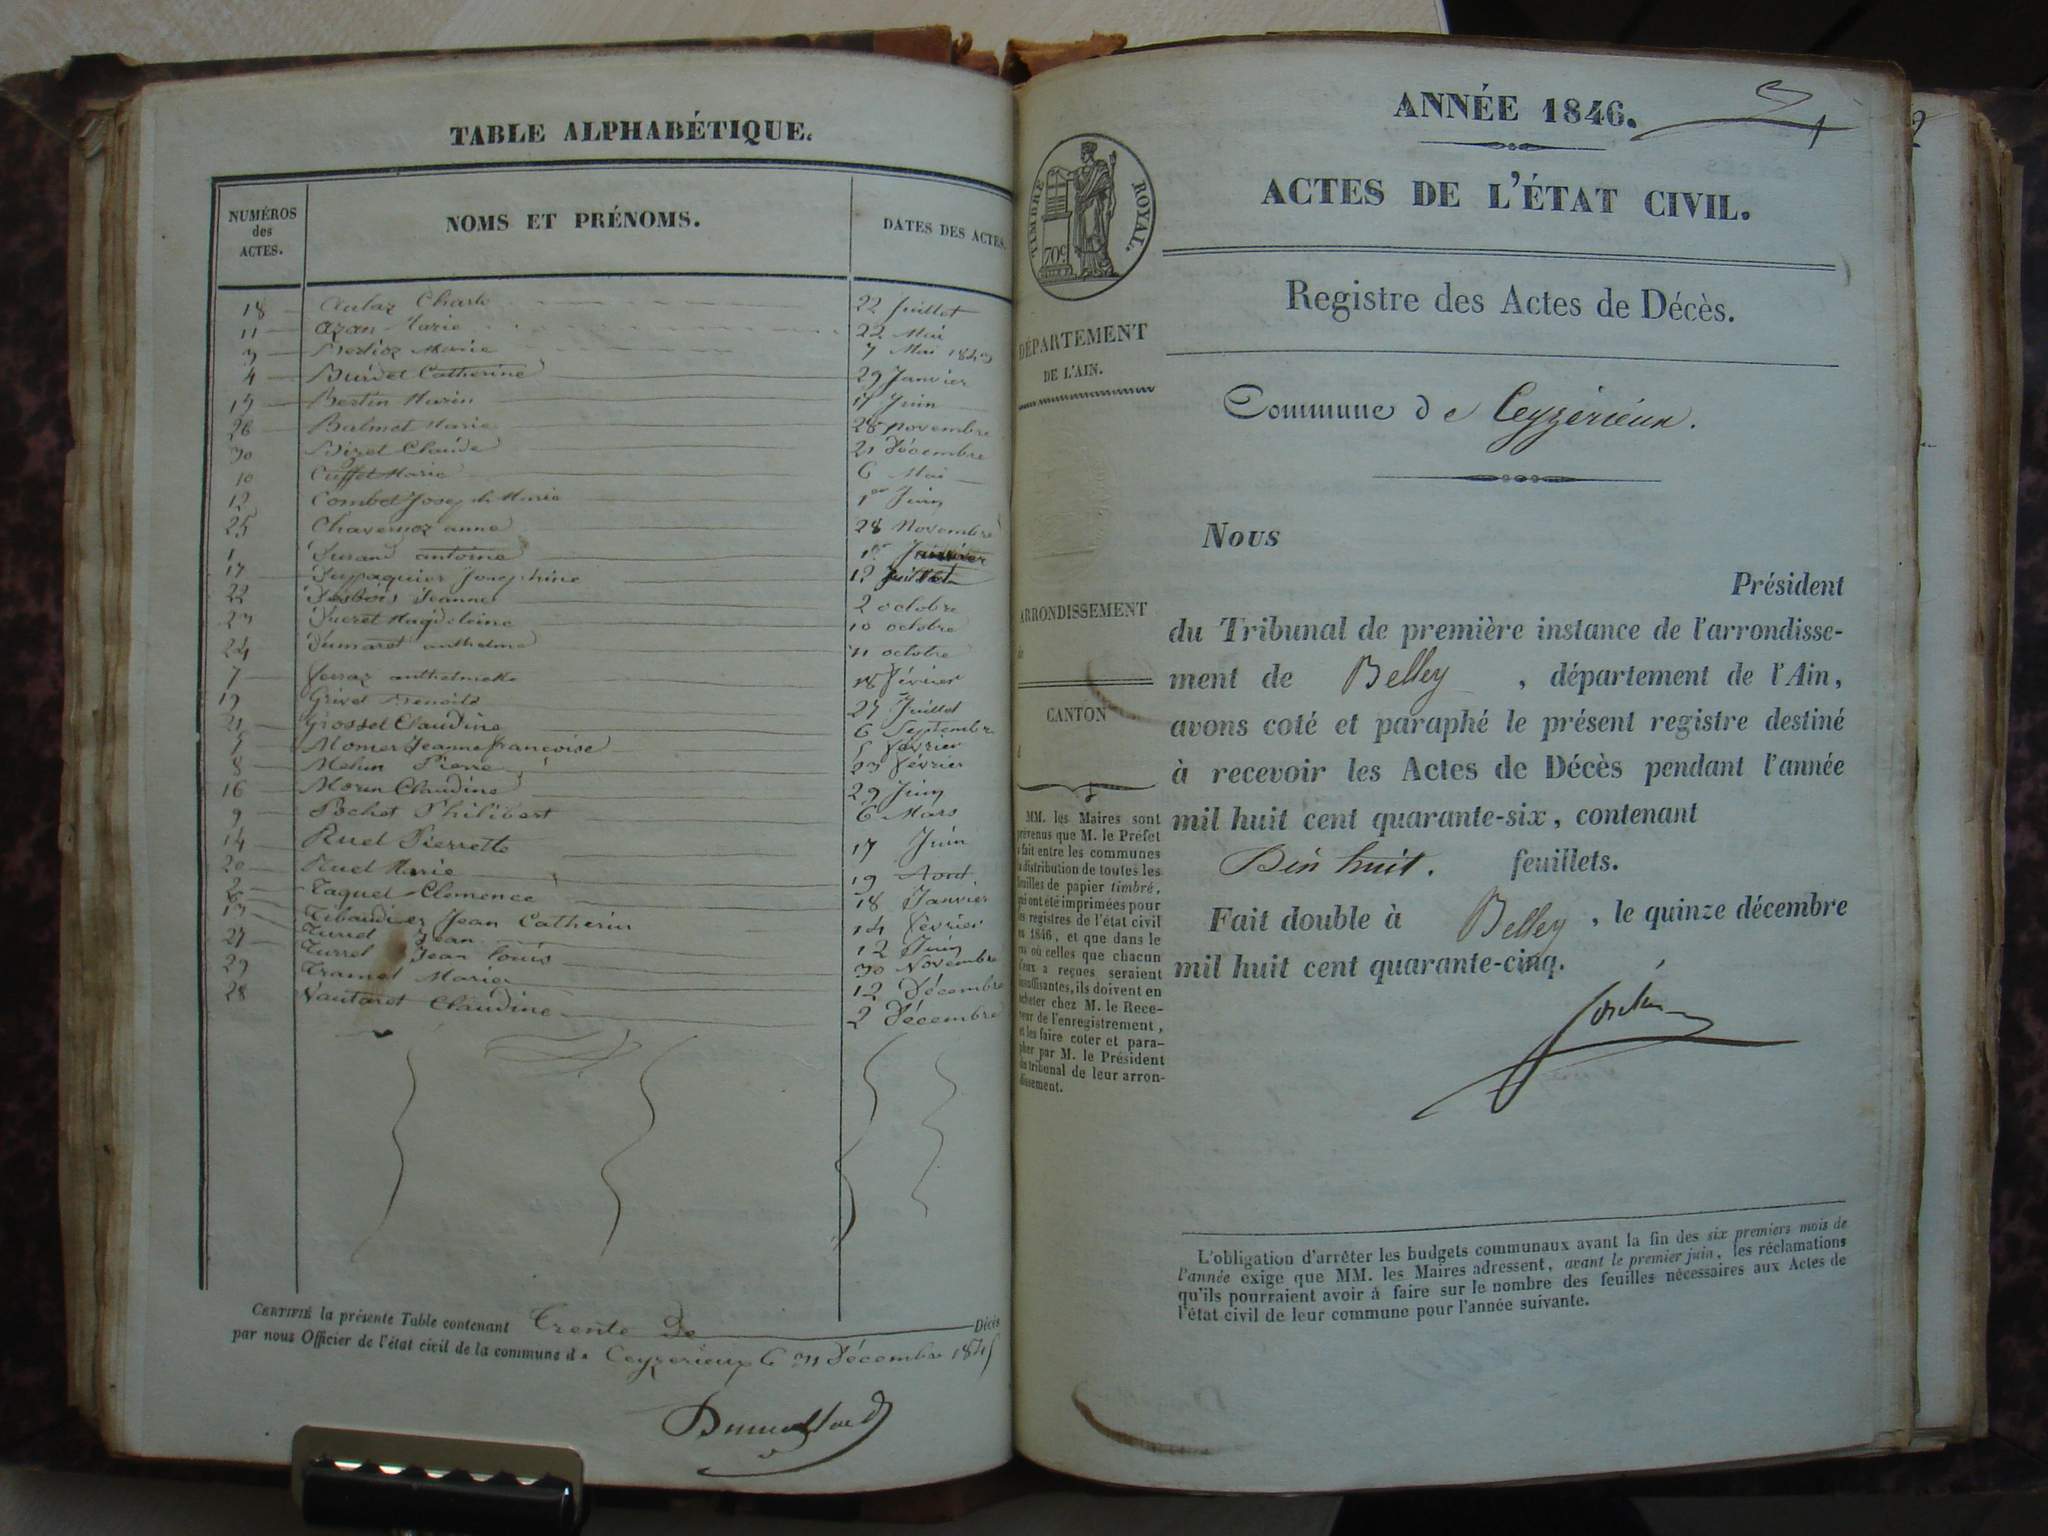 TABLE ALPHABÉTIQUE.
NUMÉROS des ACTES. NOMS ET PRÉNOMS. DATES DES ACTES.
18 Charle 22 Juillet
11 Marie 22 Mai
3 Marie 7 Mai
4 Burdet Catherine 29 Janvier
15 Bertin Marie 17 Juin
26 Balmet Marie 28 Novembre
30 Bizet Claude 21 Décembre
10 Cuffet Marie 6 Mai
12 Combet Joseph Marie 1er Juin
25 Chavernoz anne 28 Novembre
1 Durand antoine 1er Janvier
17 Dupaquier Josephine 12 Juillet
22 Desbois Jeanne 2 octobre
23 Ducret Magdeleine 10 octobre
24 Dumaret anthelme 11 octobre
7 anthelmette 18 Février
19 Grivet 27 Juillet
21 Grosset Claudine 6 Septembre
5 Jeanne françoise 5 Février
8 Melun Pierre 23 Février
16 Morin Claudine 29 Juin
9 Pochet Philibert 6 Mars
14 Ruel Pierrette 17 Juin
20 Ruel Marie 19 Aout
2 Taquet Clemence 18 Janvier
6 Tibaudier Jean Catherin 14 Février
13 Turrel Jean 12 Juin
27 Turrel Jean Louis 30 Novembre
29 Tramet Marie 12 Décembre
28 Vautaret Claudine 2 Décembre
CERTIFIÉ la présente Table contenant Trente De Décès
par nous Officier de l'état civil de la commune d Ceyzerieux le 31 Décembre 1845
ANNÉE 1846.
1
2
ACTES DE L'ÉTAT CIVIL.
TIMBRE ROYAL.
70c
Registre des Actes de Décès.
DÉPARTEMENT
DE L'AIN.
Commune de Ceyzérieux.
Nous
Président
ARRONDISSEMENT
de
du Tribunal de première instance de l'arrondisse-
ment de Belley, département de l'Ain,
CANTON
d
avons coté et paraphé le présent registre destiné
à recevoir les Actes de Décès pendant l'année
mil huit cent quarante-six, contenant
Dix huit. feuillets.
Fait double à Belley, le quinze décembre
mil huit cent quarante-cinq.
MM. les Maires sont
prévenus que M. le Préfet
a fait entre les communes
la distribution de toutes les
feuilles de papier timbré,
qui ont été imprimées pour
les registres de l'état civil
en 1846, et que dans le
cas où celles que chacun
d'eux a reçues seraient
insuffisantes, ils doivent en
acheter chez M. le Rece-
veur de l'enregistrement,
et les faire coter et para-
pher par M. le Président
du tribunal de leur arron-
dissement.
L'obligation d'arrêter les budgets communaux avant la fin des six premiers mois de
l'année exige que MM. les Maires adressent, avant le premier juin, les réclamations
qu'ils pourraient avoir à faire sur le nombre des feuilles nécessaires aux Actes de
l'état civil de leur commune pour l'année suivante.